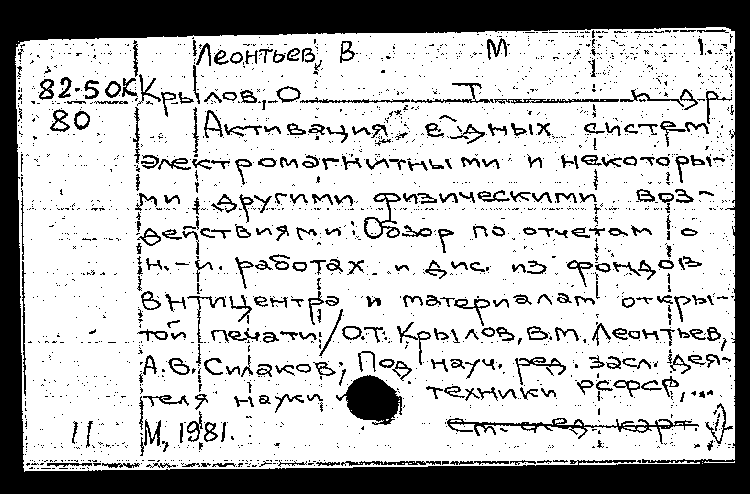 Леонтьев, В М 1.
82-5 ОК Крылов, О Т и др
80 Активация водных систем
электромагнитными и некоторы-
ми другими физическими воз-
действиями: Обзор по отчетам о
н.-и. работах и дис. из фондов
ВНТИЦентра и материалам откры-
той печати / О.Т. Крылов, В.М. Леонтьев,
А.В. Силаков; Под науч. ред. засл. дея-
теля науки техники РСФСР,...
11 М, 1981. см. след. карт.